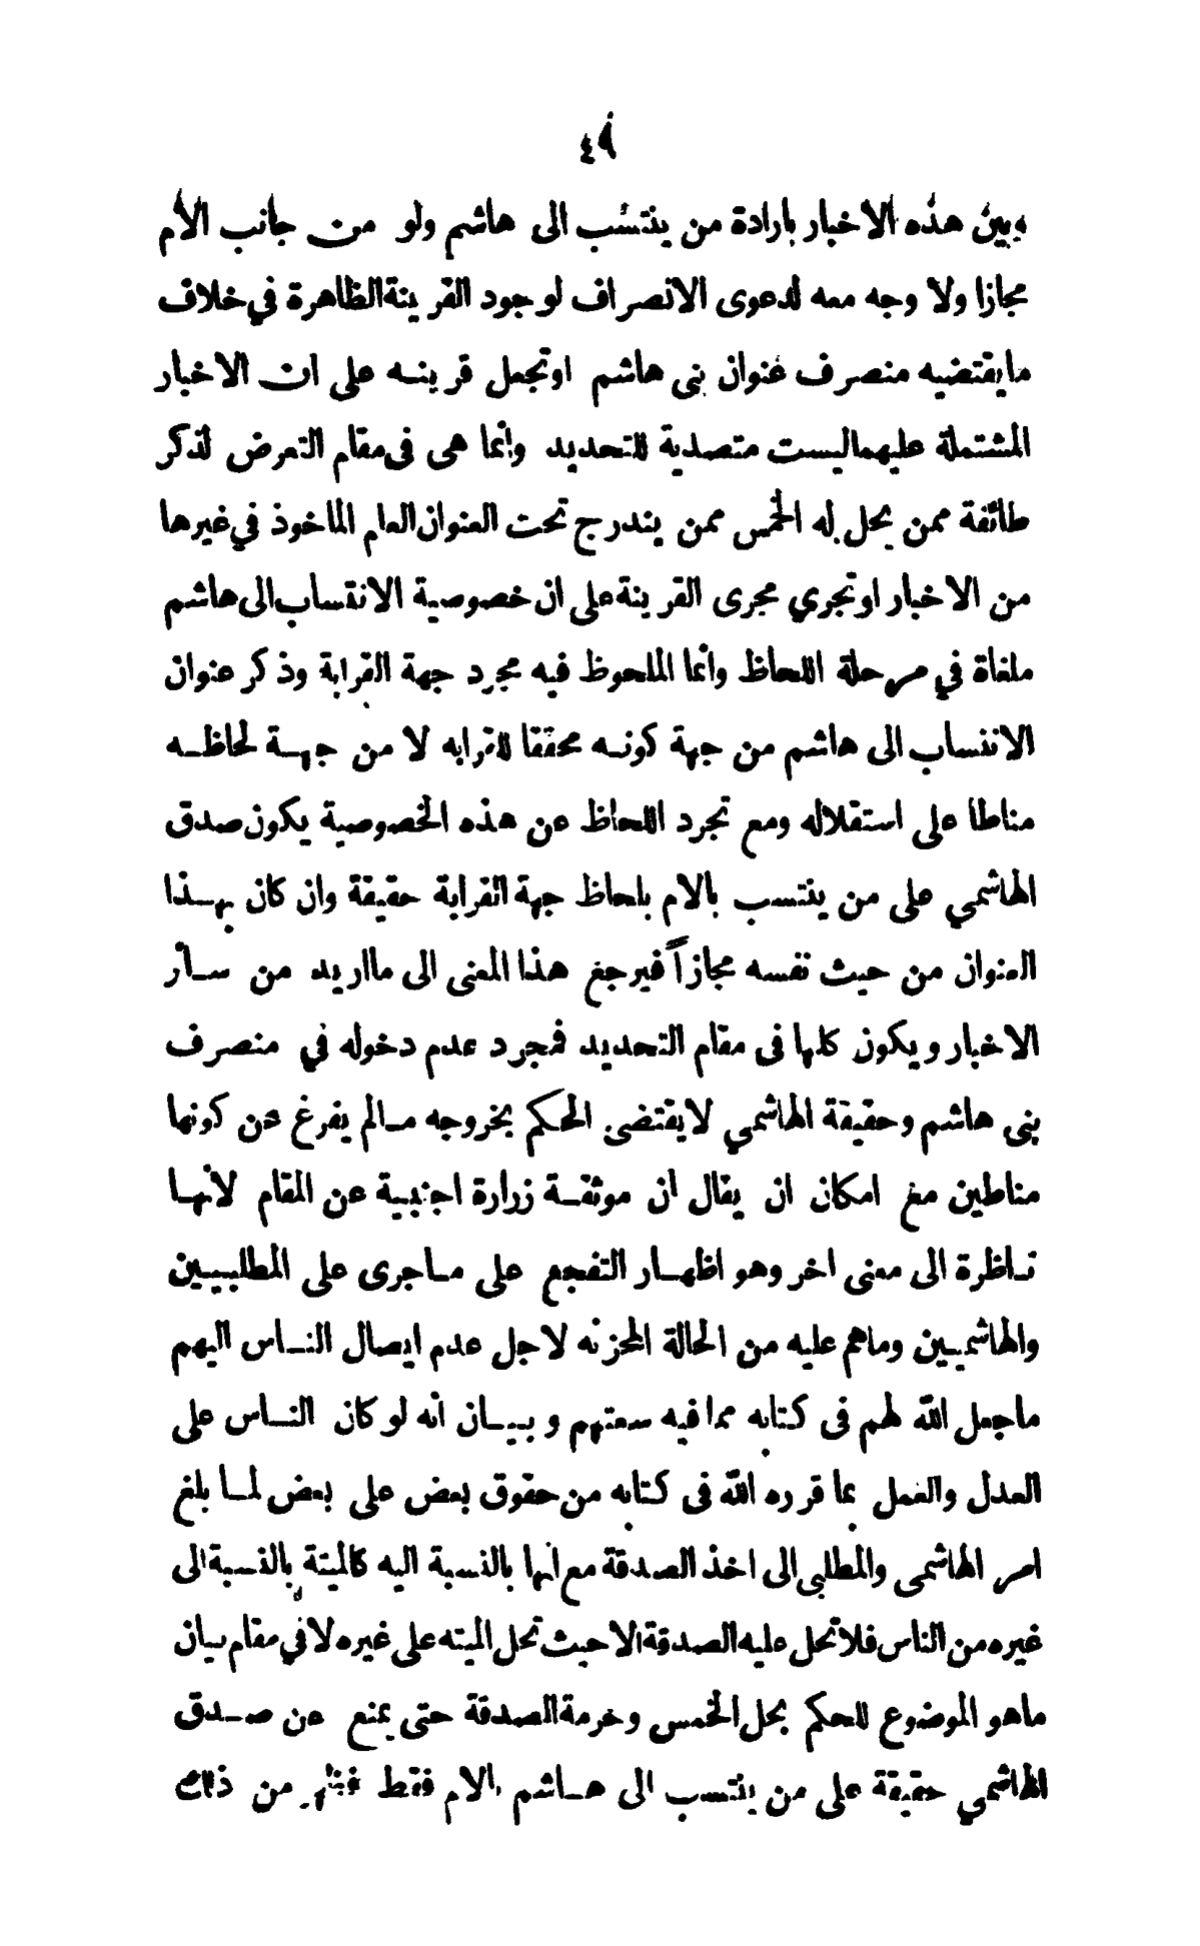 ٤٩
وبين هذه الاخبار بارادة من ينتسب الى هاشم ولو من جانب الأم
مجازا ولا وجه معه لدعوى الانصراف لوجود القرينة الظاهرة في خلاف
ما يقتضيه منصرف عنوان بنى هاشم او تجعل قرينه على ان الاخبار
المشتملة عليهما ليست متصدية للتحديد وانما هى فى مقام التعرض لذكر
طائفة ممن يحل له الخمس ممن يندرج تحت العنوان العام الماخوذ في غيرها
من الاخبار او تجري مجرى القرينة على ان خصوصية الانتساب الى هاشم
ملغاة في مرحلة اللحاظ وانما الملحوظ فيه مجرد جهة القرابة وذكر عنوان
الانتساب الى هاشم من جهة كونه محققا للقرابه لا من جهة لحاظه
مناطا على استقلاله ومع تجرد اللحاظ عن هذه الخصوصية يكون صدق
الهاشمي على من ينتسب بالام بلحاظ جهة القرابة حقيقة وان كان بهذا
العنوان من حيث نفسه مجازاً فيرجع هذا المعنى الى ما اريد من سائر
الاخبار ويكون كلها فى مقام التحديد فمجرد عدم دخوله في منصرف
بنى هاشم وحقيقة الهاشمي لا يقتضى الحكم بخروجه مالم يفرغ عن كونها
مناطين مع امكان ان يقال ان موثقة زرارة اجنبية عن المقام لانها
ناظرة الى معنى اخر وهو اظهار التفجع على ما جرى على المطلبيين
والهاشميين وماهم عليه من الحالة المحزنه لاجل عدم ايصال الناس اليهم
ما جعل الله لهم فى كتابه مما فيه سعتهم وبيان انه لو كان الناس على
العدل والعمل بما قرره الله فى كتابه من حقوق بعض على بعض لما بلغ
امر الهاشمى والمطلبى الى اخذ الصدقة مع انها بالنسبة اليه كالميتة بالنسبة الى
غيره من الناس فلا تحل عليه الصدقة الا حيث تحل الميته على غيره لا في مقام بيان
ماهو الموضوع للحكم بحل الخمس وحرمة الصدقة حتى يمنع عن صدق
الهاشمي حقيقة على من ينتسب الى هاشم بالام فقط فيظهر من ذلك